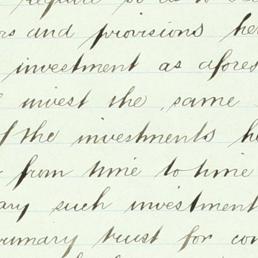 require
rs and provisions her
investment as afores
invest the same
f the investments he
from time to time
any such investment
rimary trust for con